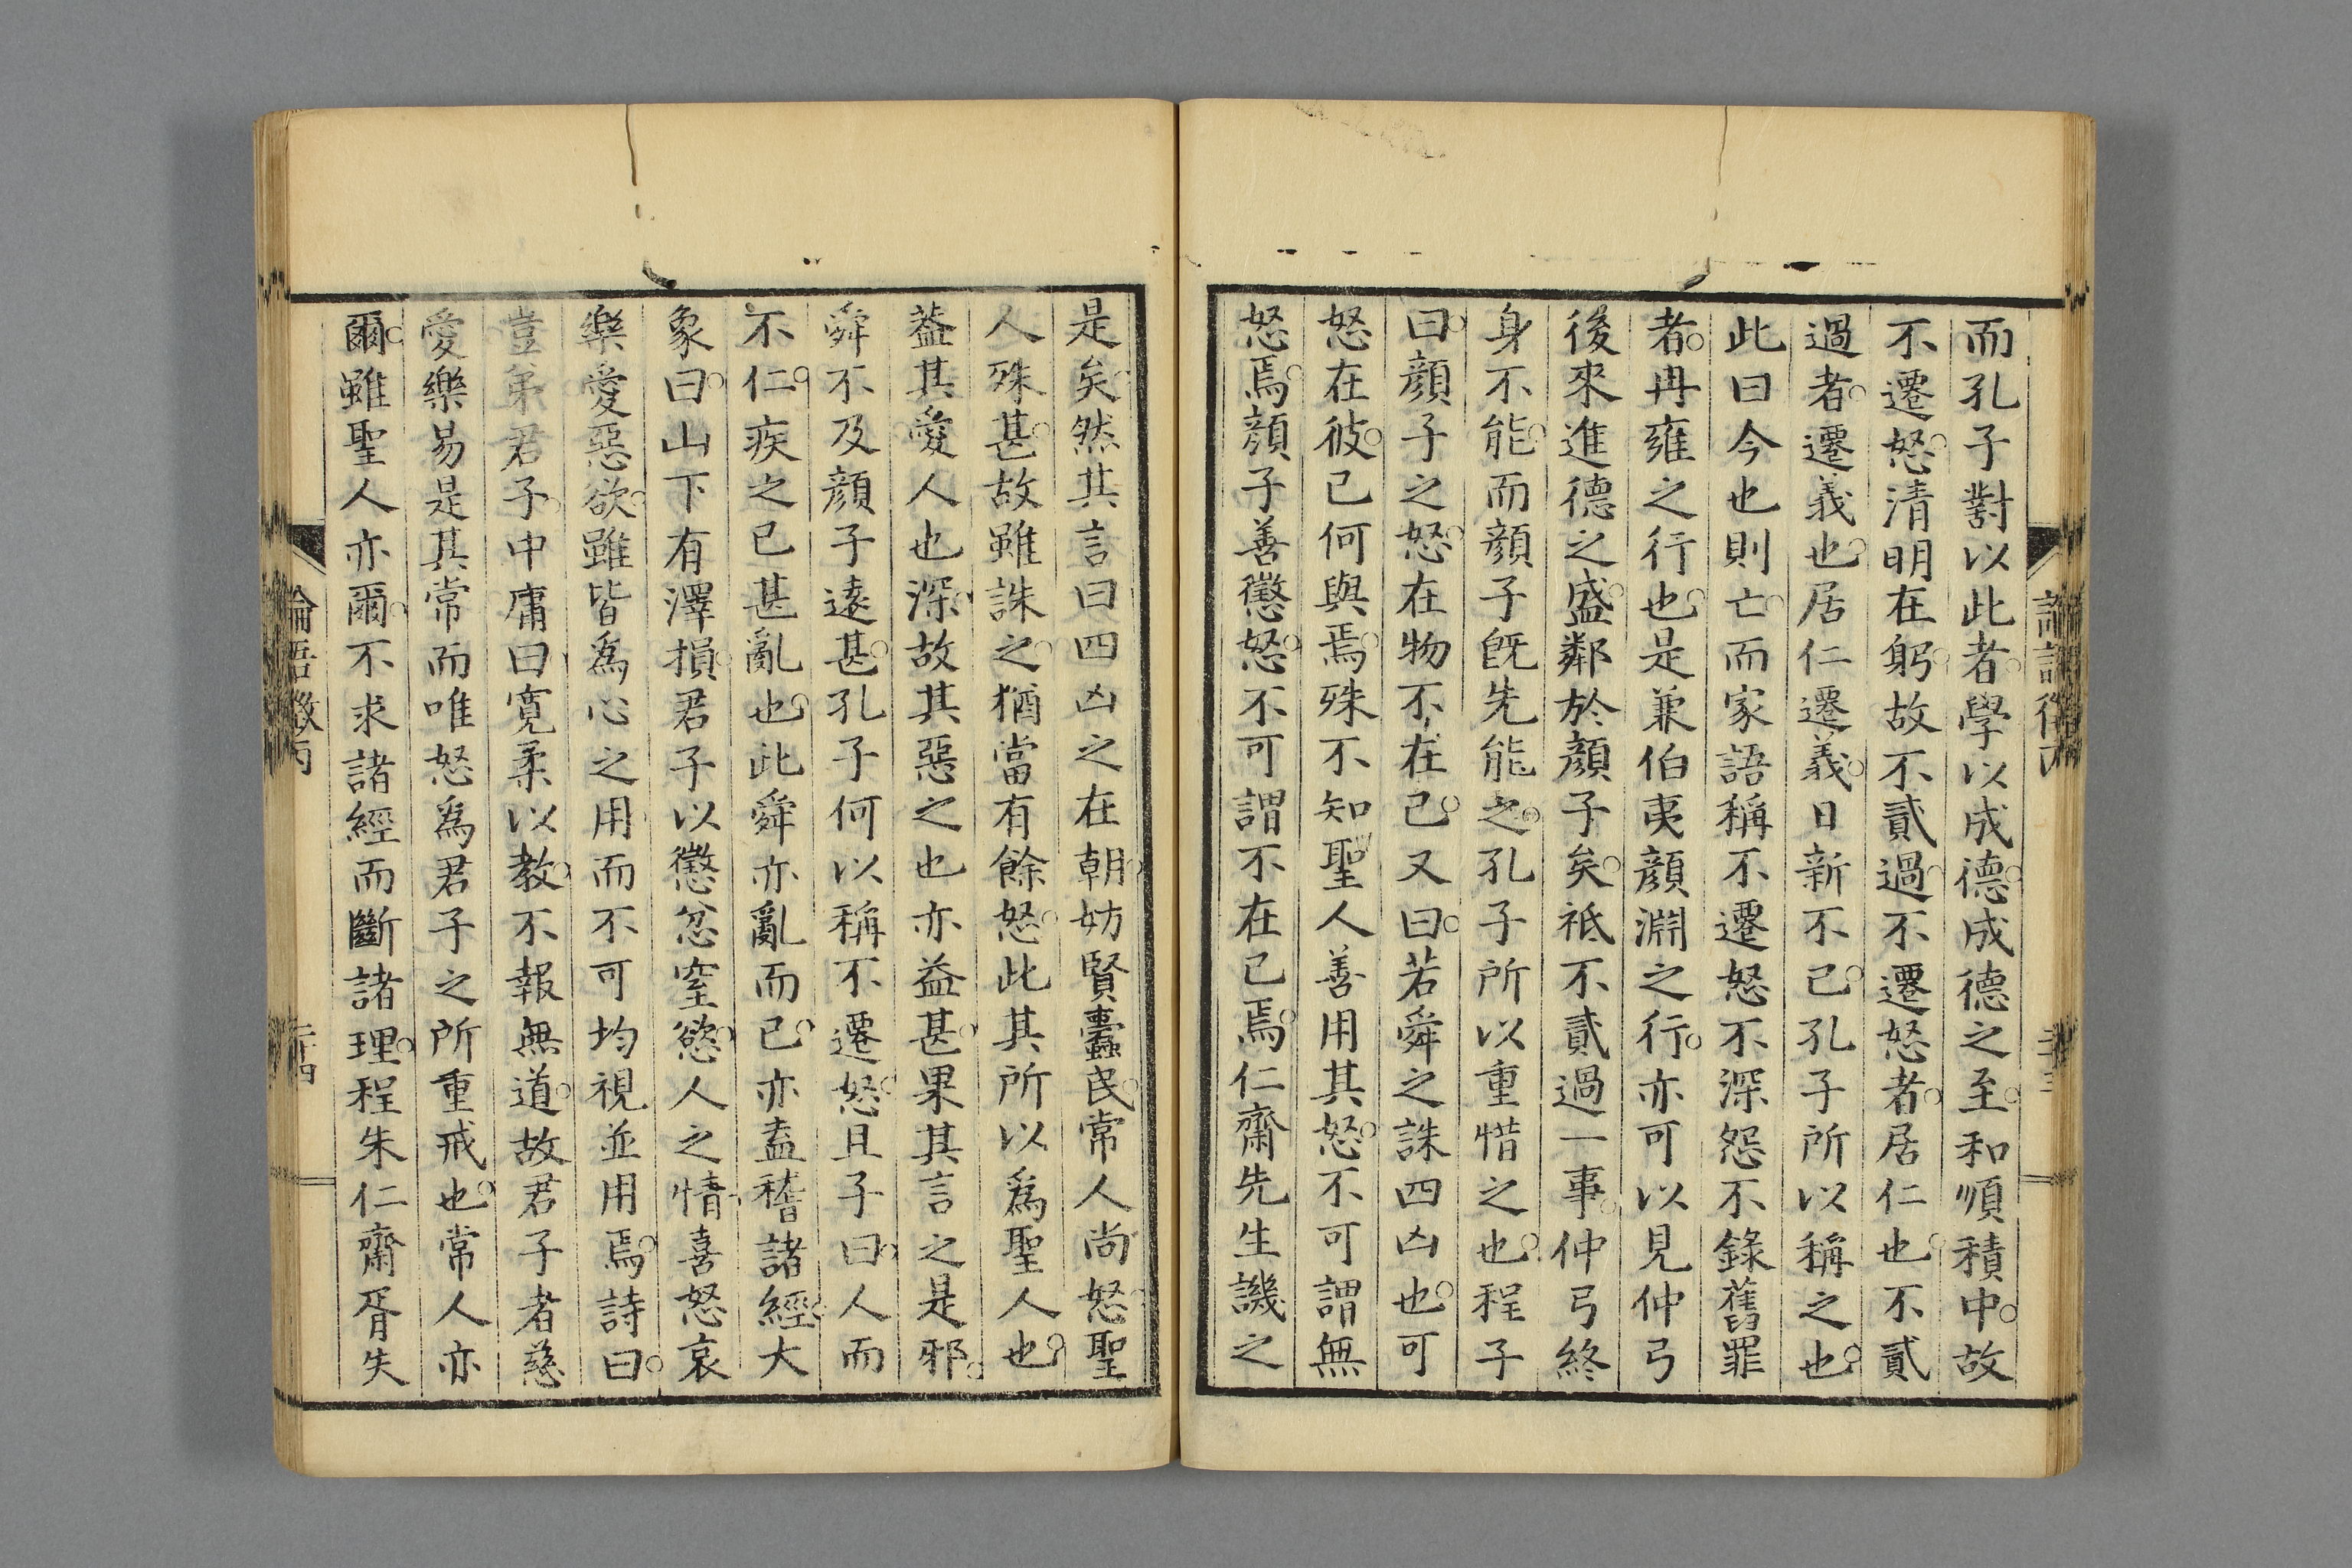 而孔子對以此者。學以成德。成德之至。和順積中。故
不遷怒。清明在躬。故不貳過。不遷怒者。居仁也。不貳
過者。遷義也。居仁遷義。日新不已。孔子所以稱之也。
此曰今也則亡。而家語稱不遷怒不深怨不錄舊罪
者。冉雍之行也。是兼伯夷顏淵之行。亦可以見仲弓
後來進德之盛。鄰於顏子矣。祗不貳過一事。仲弓終
身不能。而顏子旣先能之。孔子所以重惜之也。程子
曰。顏子之怒。在物不在己。又曰。若舜之誅四凶也。可
怒在彼。己何與焉。殊不知聖人善用其怒。不可謂無
怒焉。顏子善懲怒。不可謂不在己焉。仁齋先生譏之
是矣。然其言曰四凶之在朝。妨賢蠹民。常人尚怒。聖
人殊甚。故雖誅之。猶當有餘怒。此其所以爲聖人也。
葢其愛人也深。故其惡之也亦益甚。果其言之是邪。
舜不及顏子遠甚。孔子何以稱不遷怒。且子曰。人而
不仁。疾之已甚亂也。此舜亦亂而已。亦盍稽諸經。大
象曰。山下有澤損。君子以懲忿窒慾。人之情。喜怒哀
樂愛惡欲。雖皆爲心之用。而不可均視並用焉。詩曰。
豈弟君子。中庸曰寬柔以教。不報無道。故君子者慈
愛樂易是其常。而唯怒爲君子之所重戒也。常人亦
爾。雖聖人亦爾。不求諸經而斷諸理。程朱仁齋胥失
論語徵丙
二十四